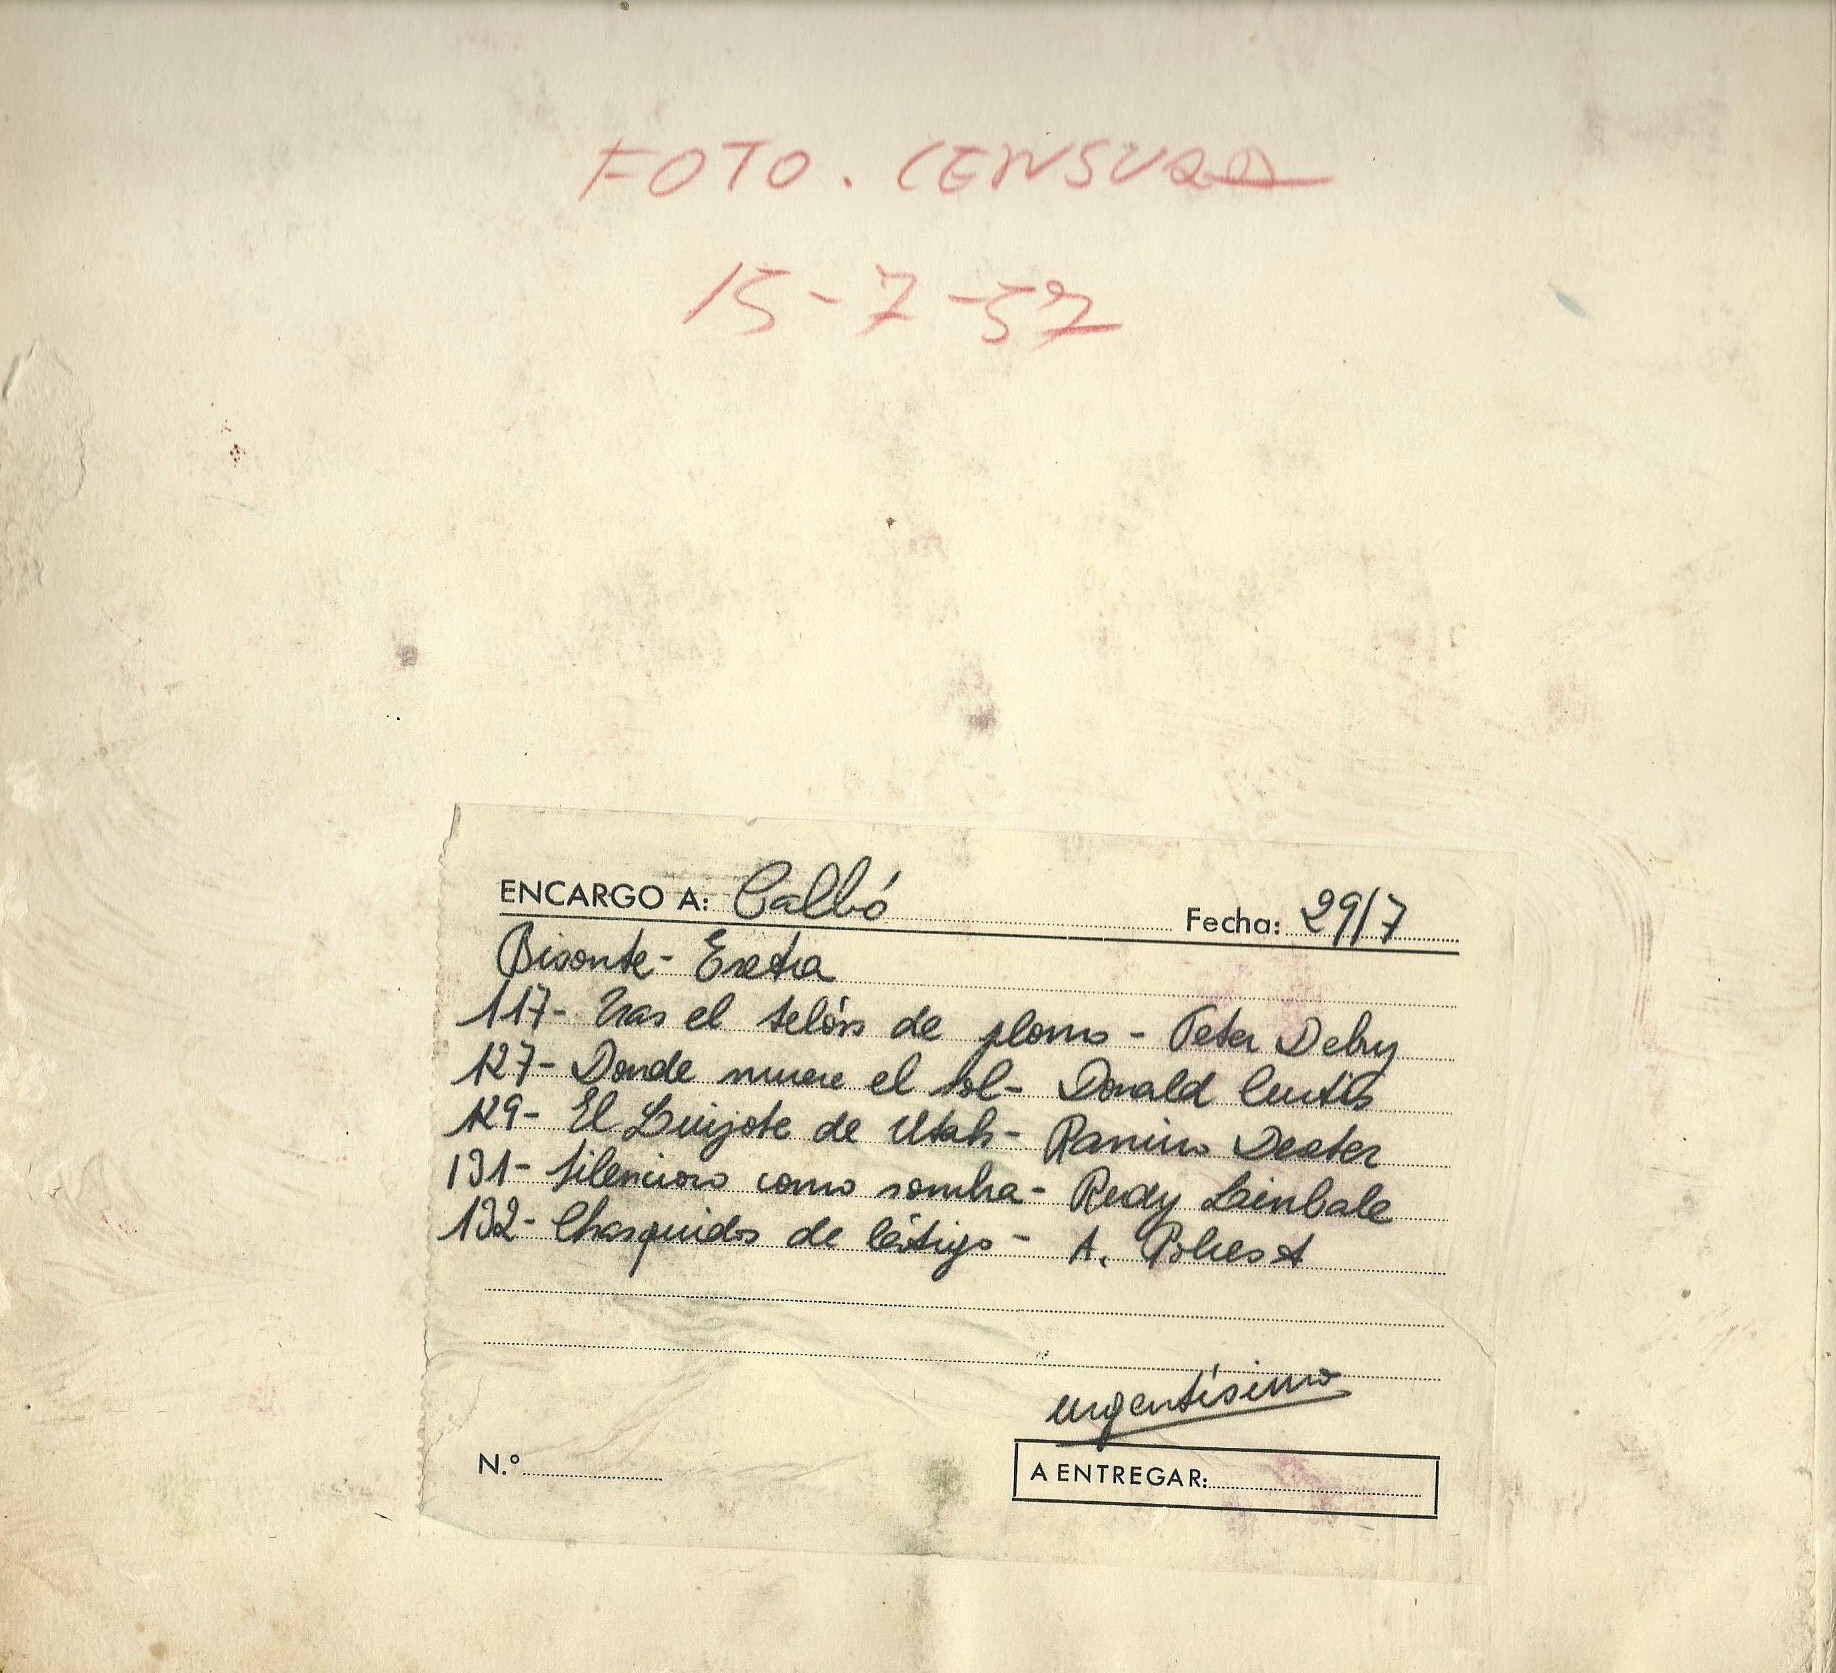 FOTO. CENSURA
15-7-57
ENCARGO A: Calbó Fecha: 29/7
Bisonte - Extra
117- Tras el telón de plomo - Peter Deby
127- Donde muere el sol - Donald Curtis
129- El Quijote de Utah - Ramiro Dexter
131- Silencioso como sombra - Rudy Linbale
132- Chasquidos de látigo - A. Rolcest
urgentísimo
N.º
A ENTREGAR: